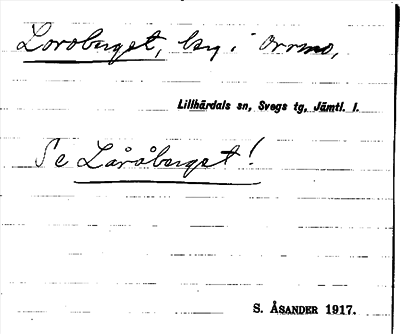 Loroberget, by i Orrmo,
Lillhärdals sn, Svegs tg, Jämtl. l.
Se Låråberget!
S. ÅSANDER 1917.